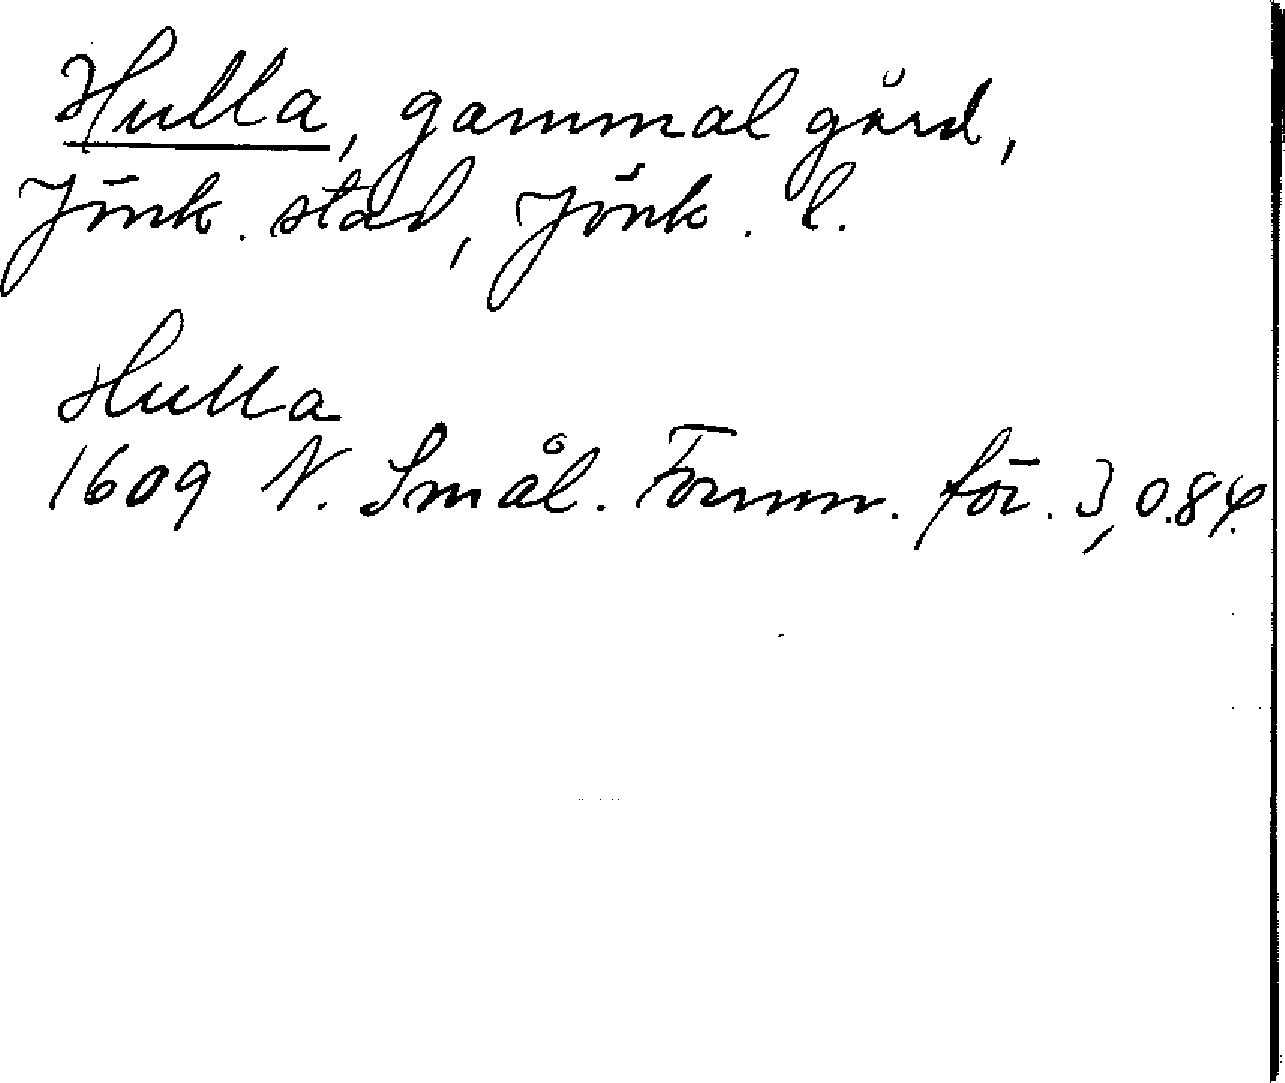 Hulla, gammal gård,
Jönk. stad, Jönk. l.
Hulla
1609 N. Smål. Fornm. för. 3, o.84.